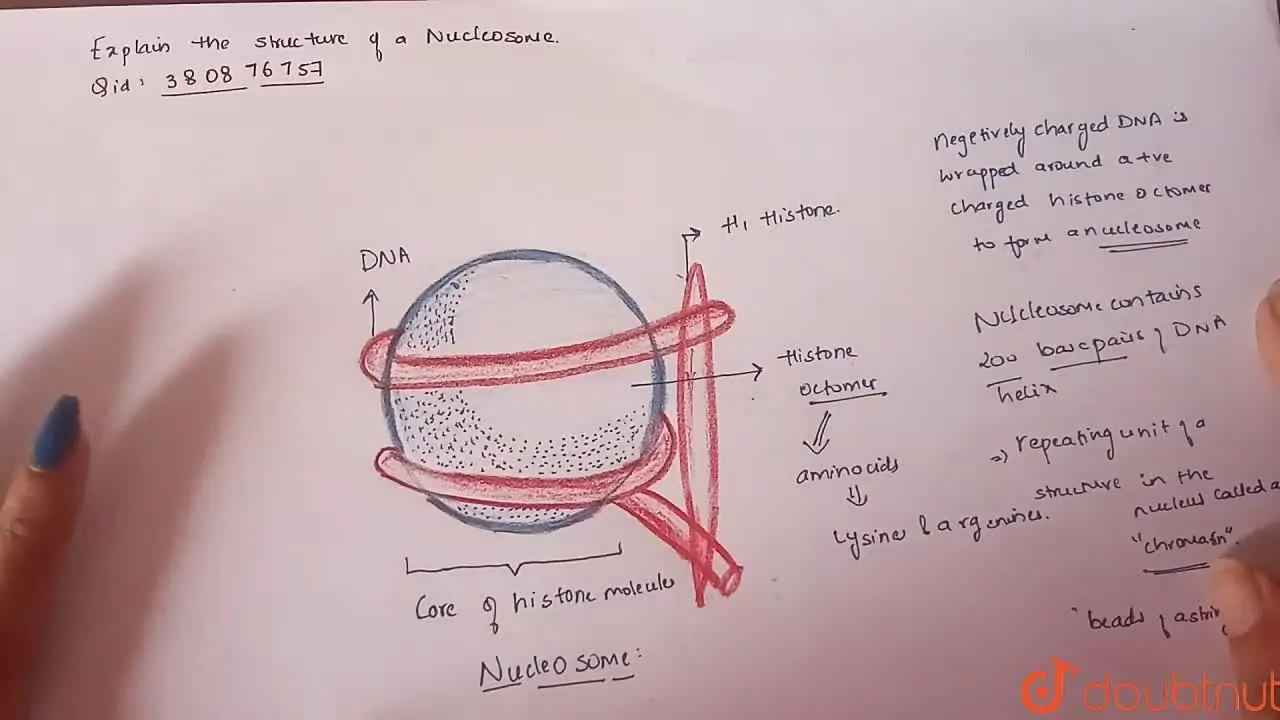 Explain the structure of a Nucleosome.
Qid: 380876757
DNA
H1 Histone.
Histone
octomer
aminocids
lysines & argenines.
Core of histone molecules
Nucleosome:
negetively charged DNA is
wrapped around a +ve
charged histone octomer
to form a nucleosome
Nucleosome contains
200 basepairs of DNA
helix
=) repeating unit of a
structure in the
nucleus called a
"chromatin".
"beads of a
doubtnut